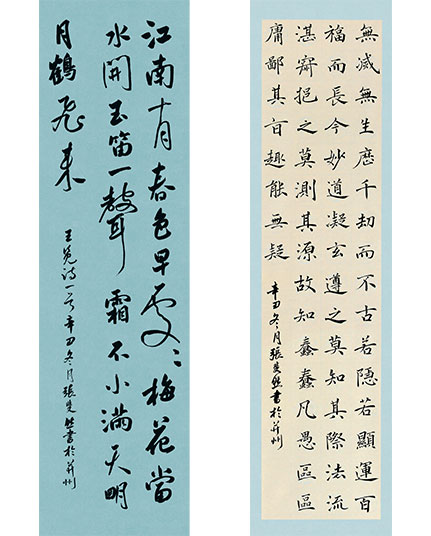 江南十月春色早處々梅花當
水開玉笛一聲霜不小滿天明
月鶴飛來
王冕詩一首辛丑冬月張然書於并州
無滅無生歷千劫而不古若隱若顯運百
福而長今妙道凝玄遵之莫知其際法流
湛寂挹之莫測其源故知蠢蠢凡愚區區
庸鄙其旨趣能無疑
辛丑冬月張然書於并州